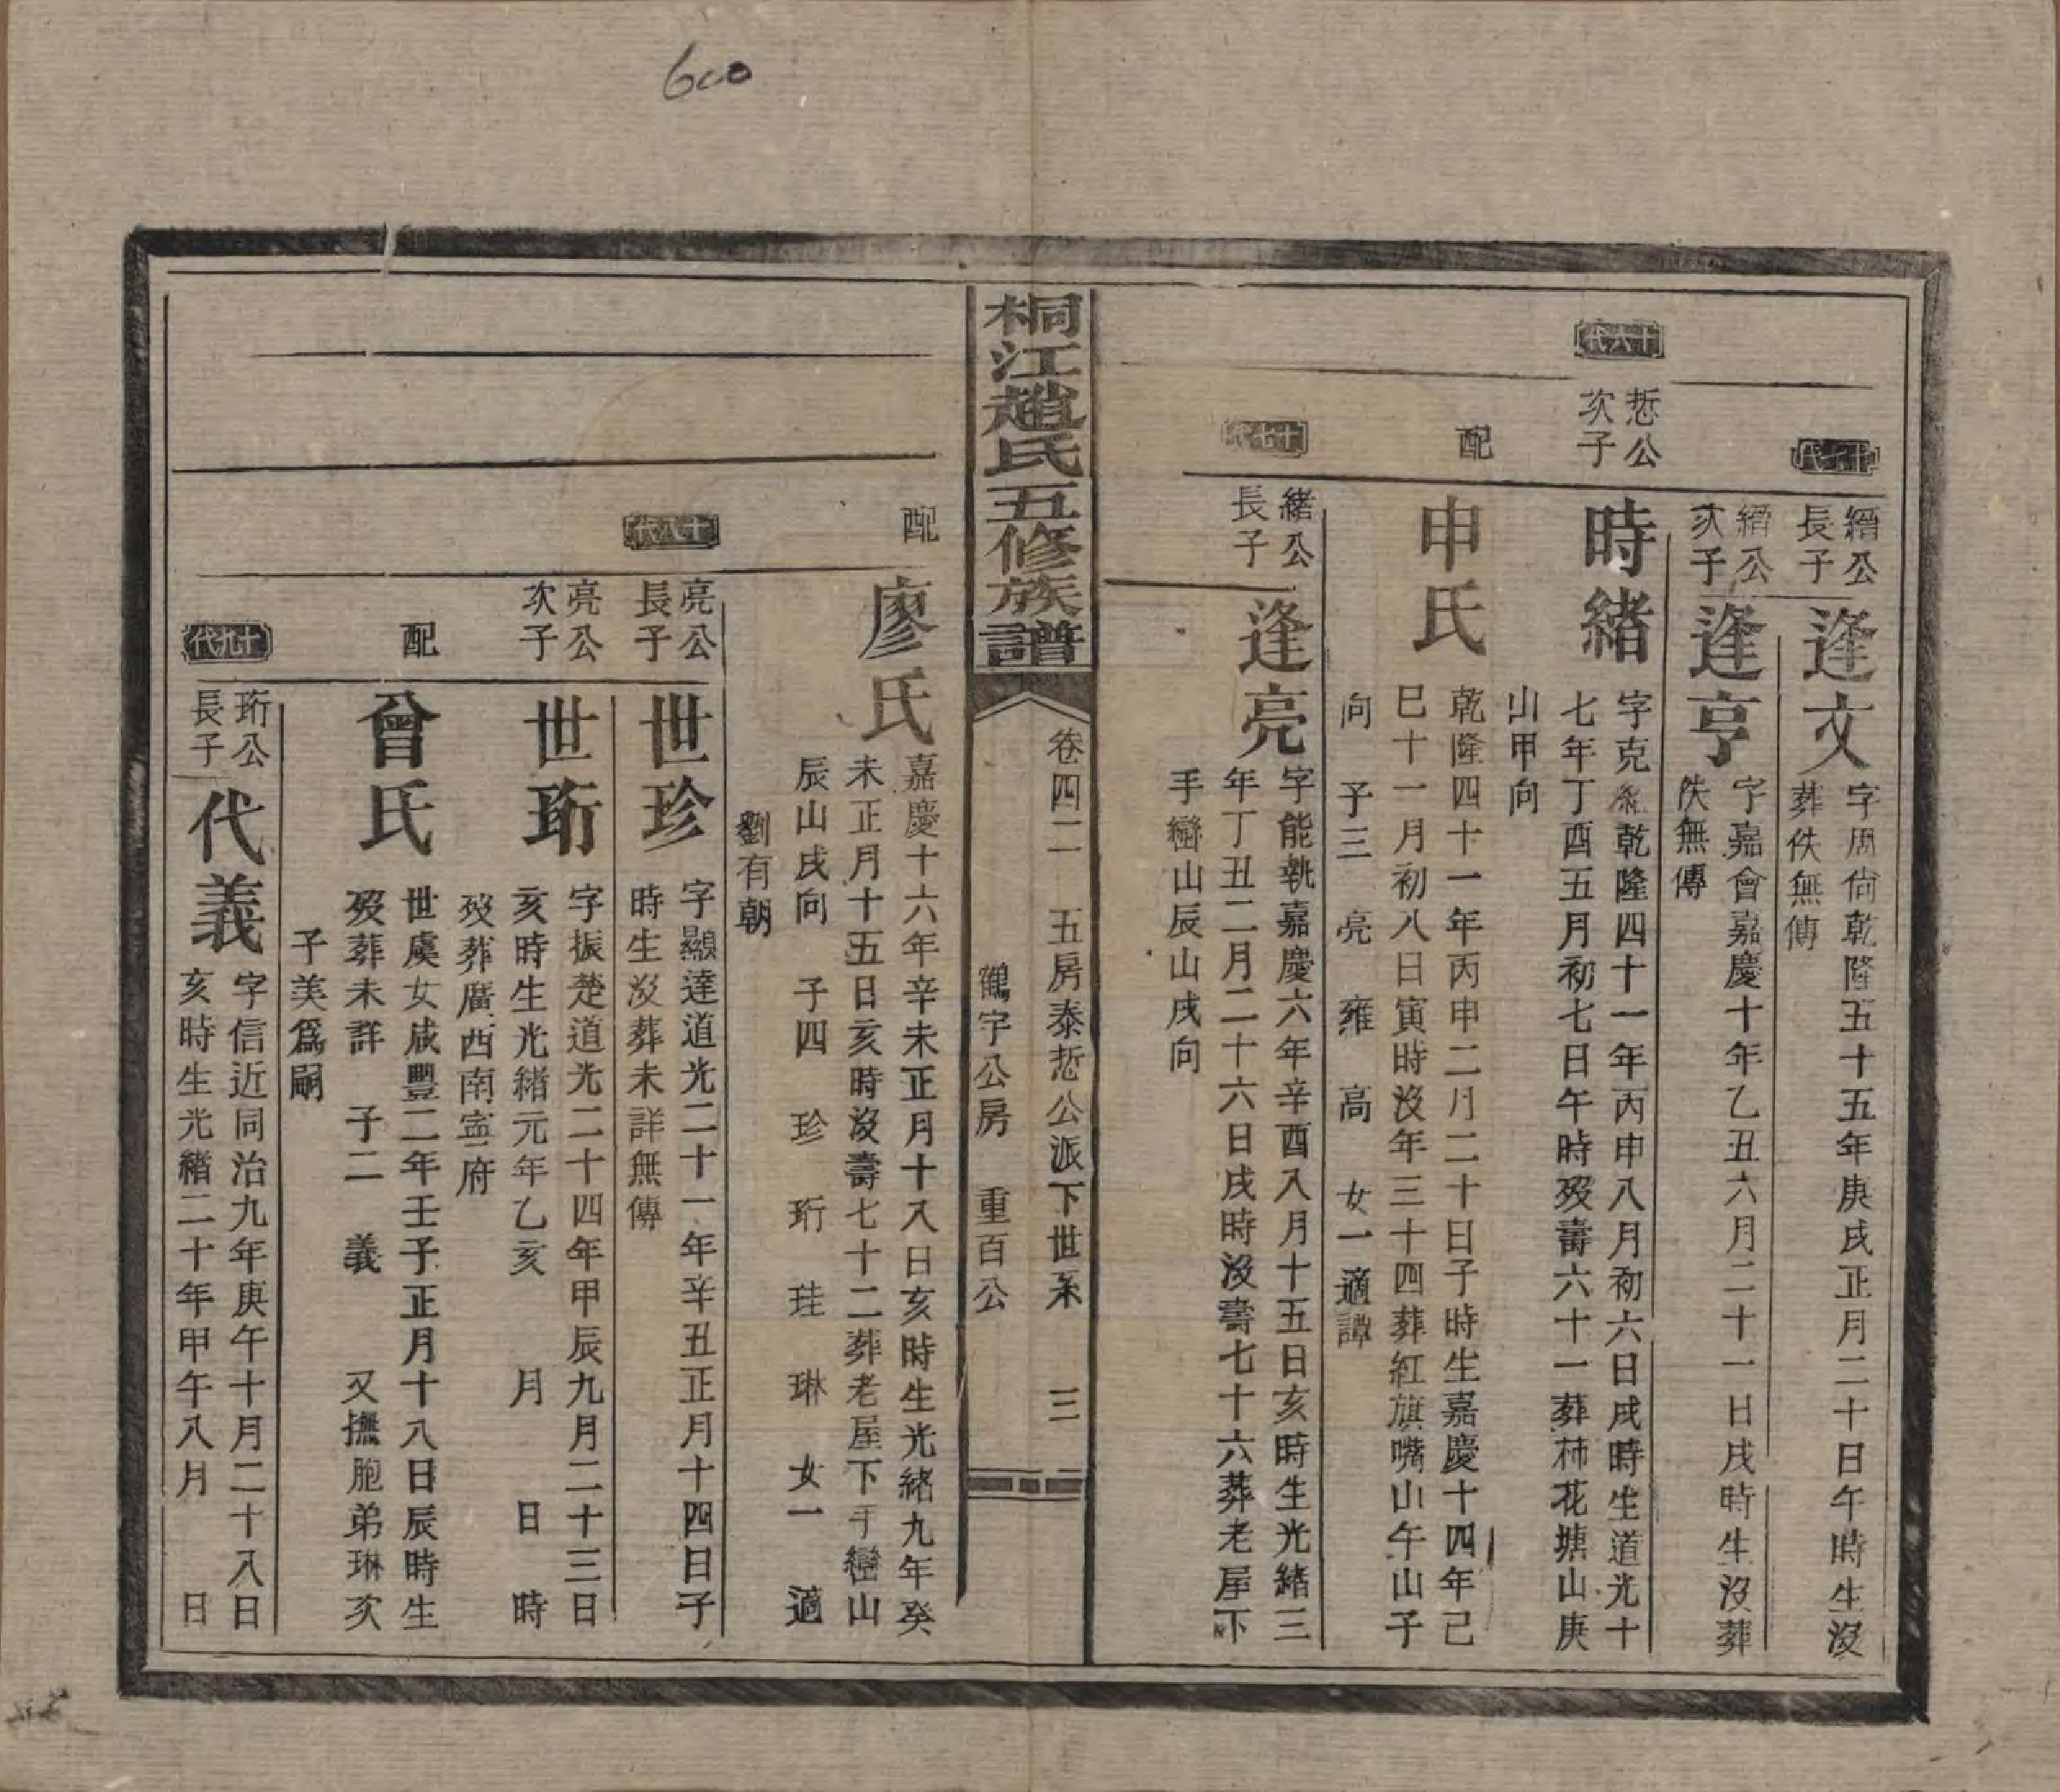 600
十七代
縉公
長子
逢文
字周尙乾隆五十五年庚戌正月二十日午時生沒
葬佚無傳
縉公
次子
逢亨
字嘉會嘉慶十年乙丑六月二十一日戌時生沒葬
佚無傳
十六代
悊公
次子
時緒
字克纘乾隆四十一年丙申八月初六日戌時生道光十
七年丁酉五月初七日午時歿壽六十一葬柿花塘山庚
山甲向
配
申氏
乾隆四十一年丙申二月二十日子時生嘉慶十四年己
巳十一月初八日寅時沒年三十四葬紅旗嘴山午山子
向 子三 亮 雍 高 女一適譚
十七代
緒公
長子
逢亮
字能執嘉慶六年辛酉八月十五日亥時生光緒三
年丁丑二月二十六日戌時沒壽七十六葬老屋下
手巒山辰山戌向
桐江趙氏五修族譜
卷四二 五房泰悊公派下世系 三
鶴字公房 重百公
配
廖氏
嘉慶十六年辛未正月十八日亥時生光緒九年癸
未正月十五日亥時沒壽七十二葬老屋下手巒山
辰山戌向 子四 珍 珩 珪 琳 女一 適
劉有朝
十八代
亮公
長子
世珍
字顯達道光二十一年辛丑正月十四日子
時生沒葬未詳無傳
亮公
次子
世珩
字振楚道光二十四年甲辰九月二十三日
亥時生光緒元年乙亥 月 日 時
歿葬廣西南寍府
配
曾氏
世虞女咸豐二年壬子正月十八日辰時生
歿葬未詳 子二 義 又撫胞弟琳次
子美爲嗣
十九代
珩公
長子
代義
字信近同治九年庚午十月二十八日
亥時生光緒二十年甲午八月 日